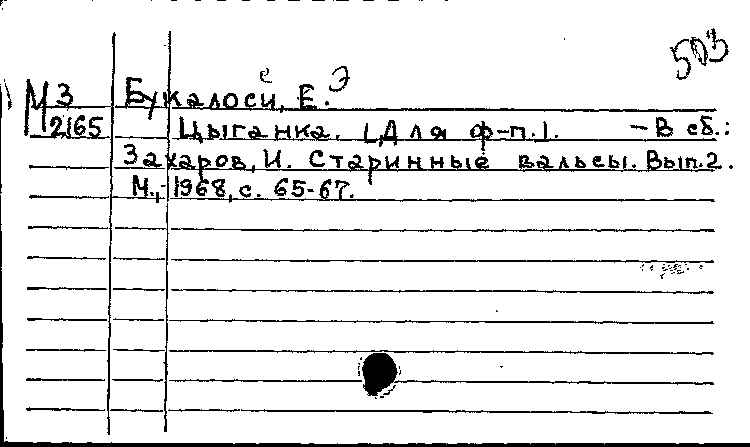 503
е Э
М3 Букалоси, Е.
2165 Цыганка. [Для ф-п.]. — В сб.:
Захаров, И. Старинные вальсы. Вып. 2.
М., 1968, с. 65-67.